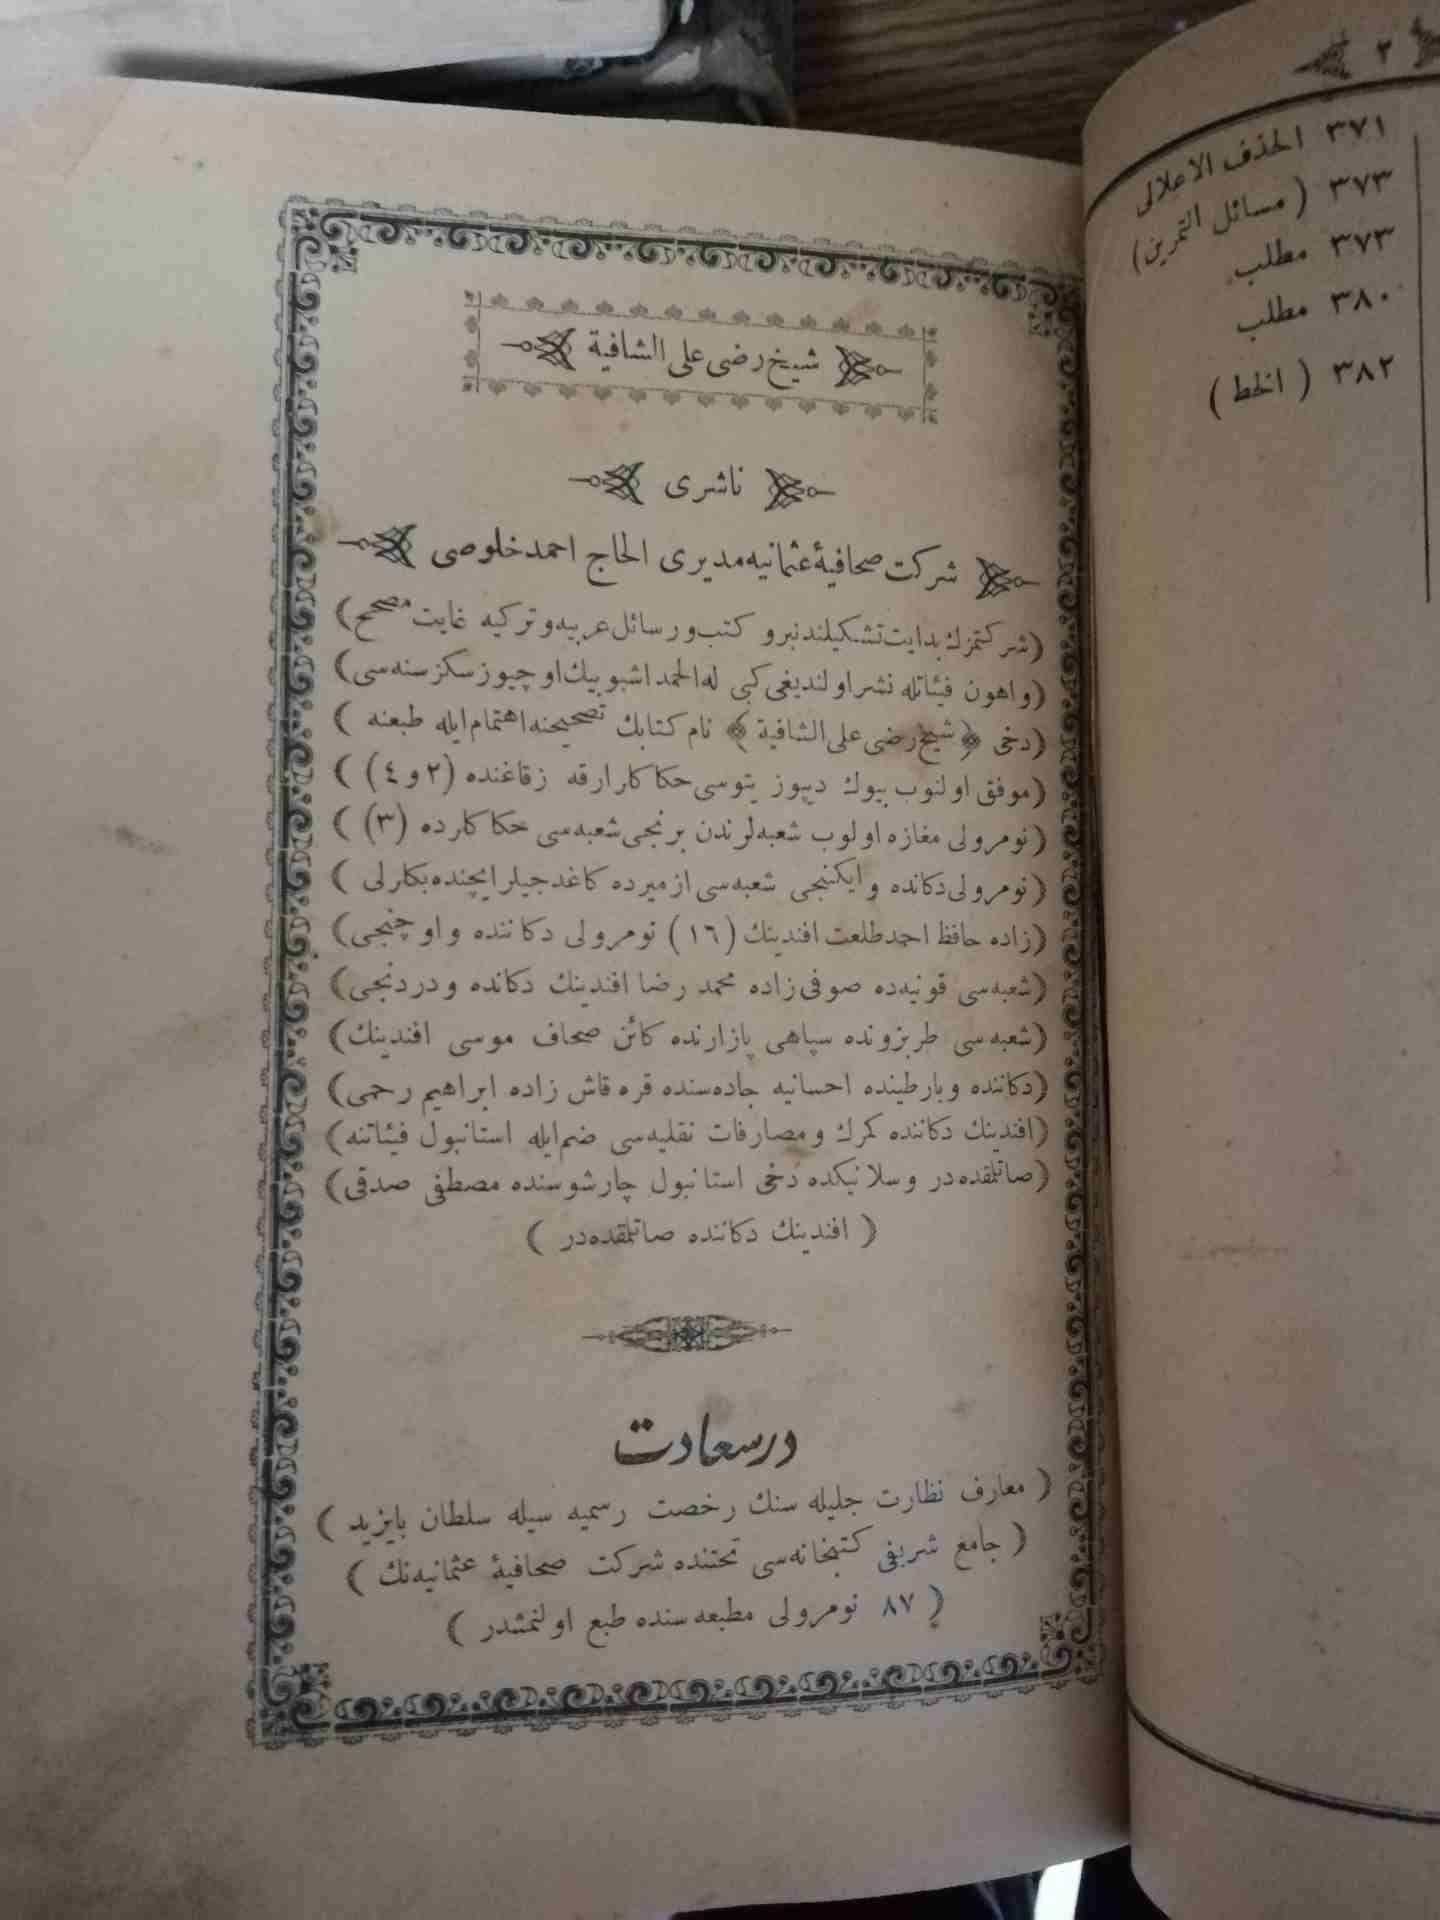 شیخ رضی علی الشافیة
ناشری
شرکت صحافیهٔ عثمانیه مدیری الحاج احمد خلوصی
(شرکتمزك بدایت تشکیلندنبرو کتب و رسائل عربیه و ترکیه غایت مصحح)
(و اهون فیئاتله نشر اولندیغی کبی له الحمد اشبو بیك اوچیوز سکز سنه سی)
(دخی ﴿ شیخ رضی علی الشافیة ﴾ نام کتابك تصحیحنه اهتمام ایله طبعنه )
(موفق اولنوب بیوك دیپوزیتوسی حکاکلر ارقه زقاغنده (۲ و ٤) )
(نومرولی مغازه اولوب شعبه لرندن برنجی شعبه سی حکاکلرده (۳) )
(نومرولی دکانده و ایکنجی شعبه سی ازمیرده کاغدجیلر ایچنده بکارلی )
(زاده حافظ احمد طلعت افندینك (۱٦) نومرولی دکاننده و اوچنجی)
(شعبه سی قونیه ده صوفی زاده محمد رضا افندینك دکانده و دردنجی)
(شعبه سی طربزونده سپاهی پازارنده کائن صحاف موسی افندینك)
(دکاننده و بارطینده احسانیه جاده سنده قره قاش زاده ابراهیم رحمی)
(افندینك دکاننده کمرك و مصارفات نقلیه سی ضم ایله استانبول فیئاتنه)
(صاتلقده در و سلانیکده دخی استانبول چارشوسنده مصطفی صدقی)
( افندینك دکاننده صاتلقده در )
درسعادت
( معارف نظارت جلیله سنك رخصت رسمیه سیله سلطان بایزید )
( جامع شریفی کتبخانه سی تحتنده شرکت صحافیهٔ عثمانیه نك )
( ۸۷ نومرولی مطبعه سنده طبع اولنمشدر )
۲
۳۷۱ الحذف الاعلالی
۳۷۳ (مسائل التمرین)
۳۷۳ مطلب
۳۸۰ مطلب
۳۸۲ ( الخط )